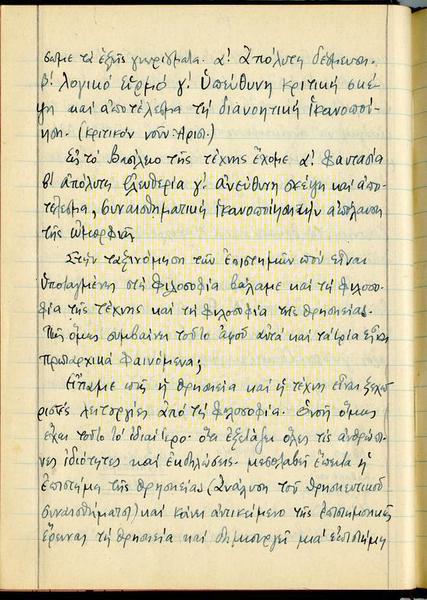 σωμε τὰ ἑξῆς γνωρίσματα. α! ἀπόλυτη δέσμευση.
β! λογικό εἱρμό γ! ὑπεύθυνη κριτική σκέ-
ψη καί ἀποτέλεσμα τή διανοητική ἱκανοποί-
ηση. (κριτικόν νοῦν Ἀρισ.)
Εἰς τό βασίλειο τῆς τέχνης ἔχομε α! Φαντασία
β! ἀπόλυτη ἐλευθερία γ! ἀνεύθυνη σκέψη καί ἀπο-
τέλεσμα, συναισθηματική ἱκανοποίηση τήν ἀπόλαυση
τῆς ὀμορφιᾶς
Στήν ταξινόμηση τῶν ἐπιστημῶν πού εἶναι
ὑποταγμένες στή φιλοσοφία βάλαμε καί τή φιλοσο-
φία τῆς τέχνης καί τή φιλοσοφία τῆς θρησκείας.
Πῶς ὅμως συμβαίνει τοῦτο ἀφοῦ αὐτά καί τά τρία εἶναι
πρωταρχικά φαινόμενα;
Εἴπαμε πώς ἡ θρησκεία καί ἡ τέχνη εἶναι ξεχω-
ριστές λειτουργίες ἀπό τή φιλοσοφία. Αὐτή ὅμως
ἔχει τοῦτο τό ἰδιαίτερο. ὅτι ἐξετάζει ὅλες τίς ἀνθρώπι-
νες ἰδιότητες καί ἐκδηλώσεις. μεσολαβεῖ ἔπειτα ἡ
ἐπιστήμη τῆς θρησκείας (ἀνάλυση τοῦ θρησκευτικοῦ
συναισθήματος) καί κάνει ἀντικείμενο τῆς ἐπιστημονικῆς
ἔρευνας τή θρησκεία καί δημιουργεῖ μιά ἐπιστήμη